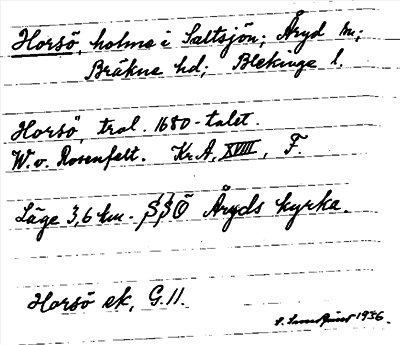 Horsö, holme i Saltsjön; Åryd sn;
Bräkne hd; Blekinge l.
Horsö, trol. 1680-talet.
W. v. Rosenfelt. Kr.A, XVIII, F.
Läge 3,6 km - SSÖ Åryds kyrka.
Horsö ek, G.11.
1956.